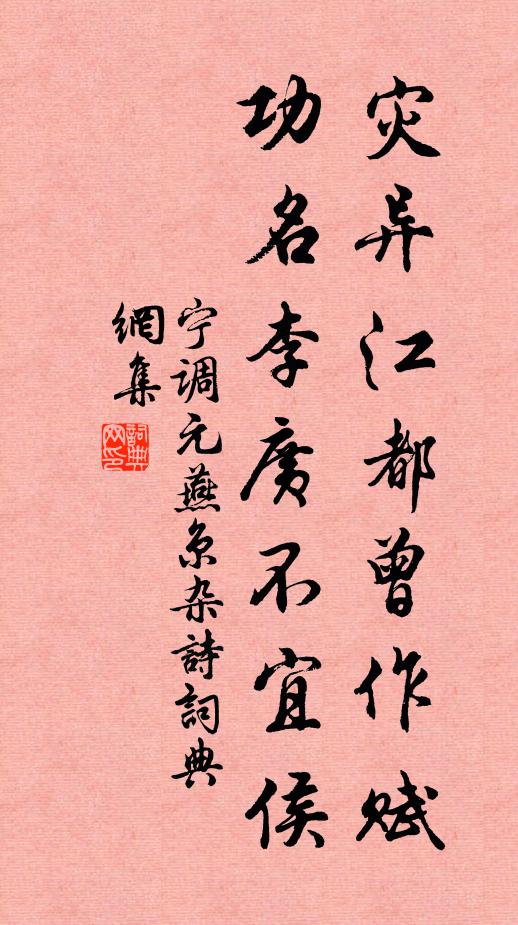 灾异江都曾作赋
功名李廣不宜侯
宁调元燕京杂詩詞典
網集
詞典網印